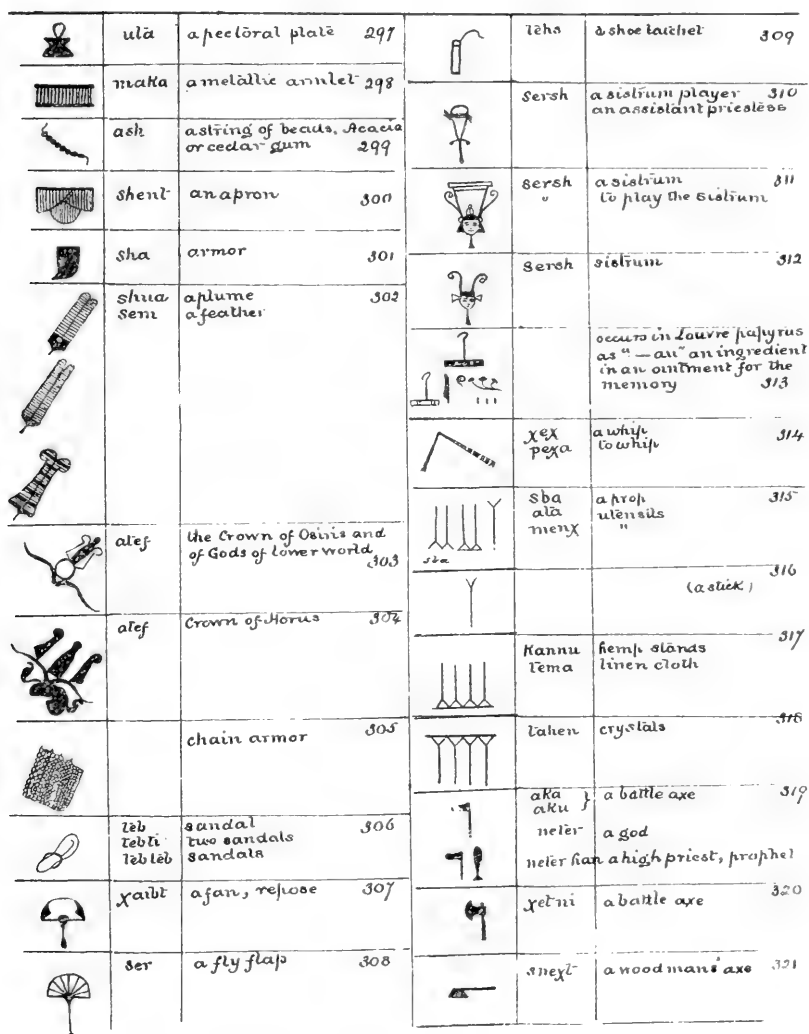 utà a pectoral plate 297
maka a metallic armlet 298
ash a string of beads, Acacia
or cedar gum 299
shent an apron 300
sha armor 301
shua a plume 302
sem a feather
atef the Crown of Osiris and
of Gods of lower world
303
atef Crown of Horus 304
chain armor 305
teb sandal 306
tebti two sandals
teb teb sandals
χaibt a fan, repose 307
ser a fly flap 308
tehs a shoe latchet 309
sersh a sistrum player 310
an assistant priestess
sersh a sistrum 311
" to play the sistrum
sersh sistrum 312
occurs in Louvre papyrus
as "— an" an ingredient
in an ointment for the
memory 313
χeχ a whip 314
peχa to whip
sba a prop 315
atà utensils
menχ "
sba
316
(a stick)
317
Kannu hemp stands
tema linen cloth
318
tahen crystals
aka } a battle axe 319
aku
neter a god
neter han a high priest, prophet
320
χetni a battle axe
sneχt a woodmans' axe 321